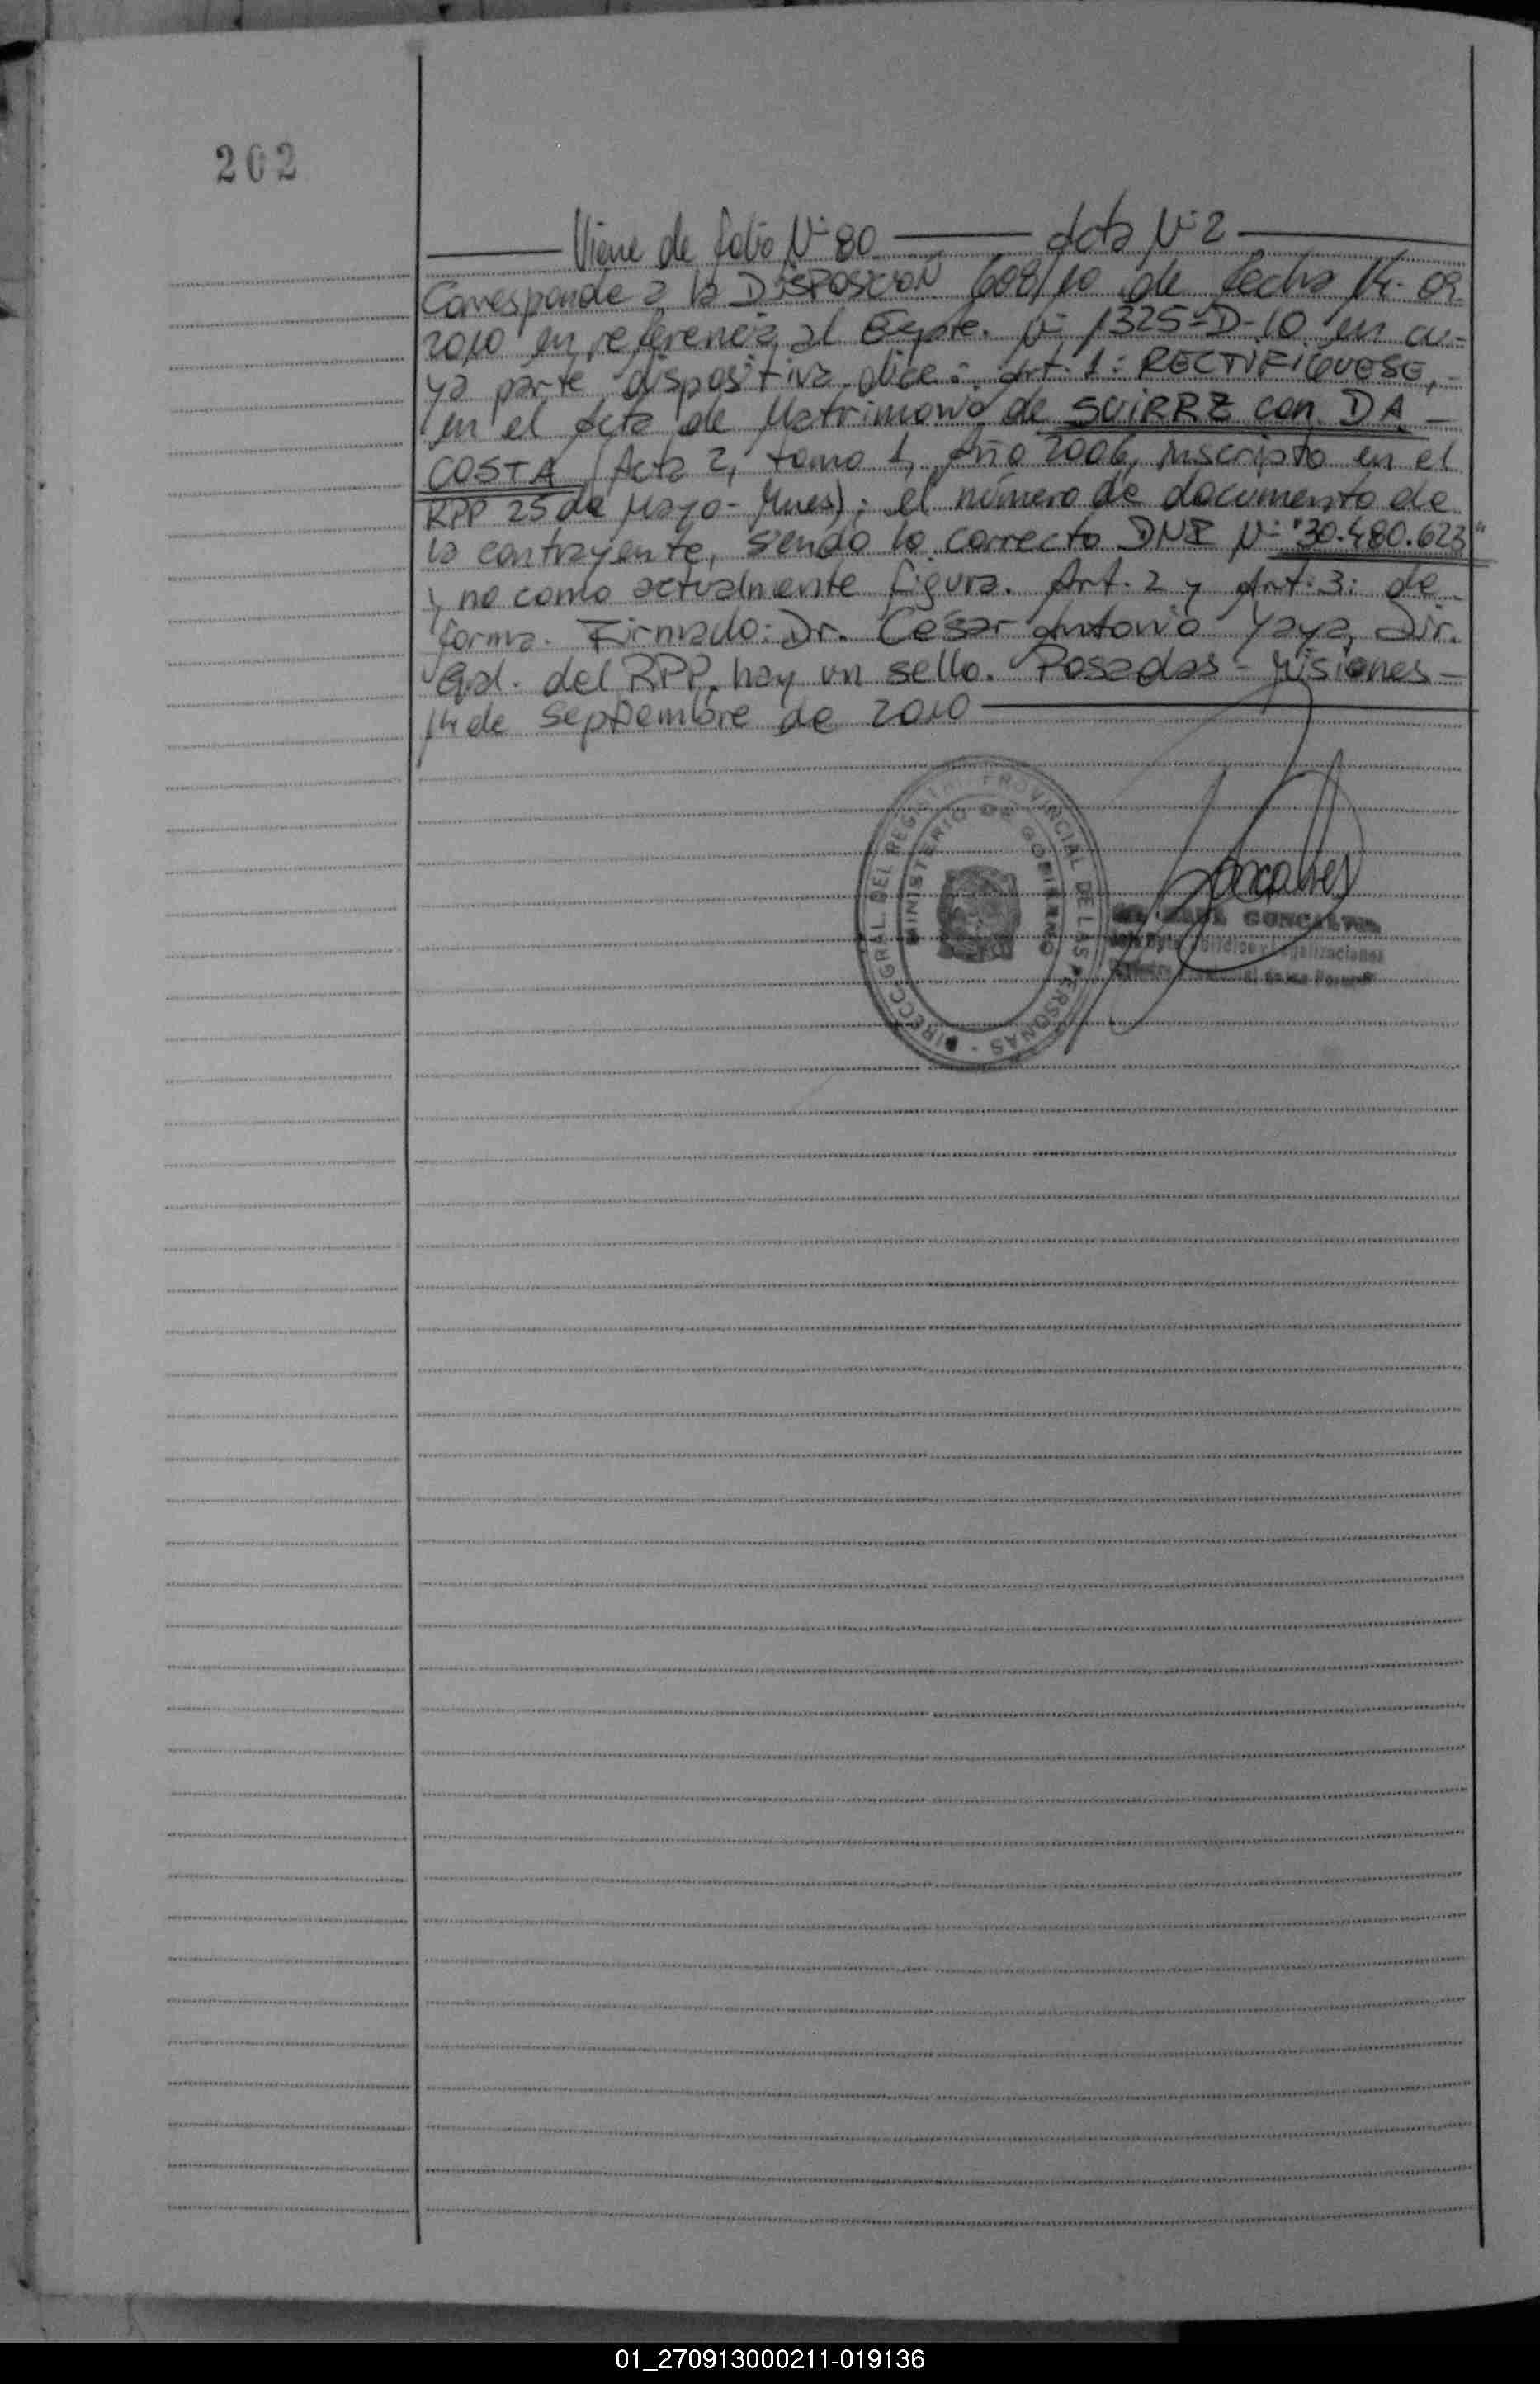 202
Viene de folio Nº 80 Acta Nº 2
Corresponde a la DISPOSICIÓN 608/10 de fecha 14-09-
2010 en referencia al Expte. Nº 1325-D-10 en cu-
ya parte dispositiva dice: Art. 1: RECTIFIQUESE,
en el Acta de Matrimonio de SUIRRZ con DA
COSTA (Acta 2, tomo 1, Año 2006, inscripto en el
RPP 25 de Mayo - Mnes); el número de documento de
la contrayente, siendo lo correcto DNI Nº "30.480.623"
y no como actualmente figura. Art. 2 y Art. 3: de
forma. Firmado: Dr. Cesar Antonio Yaya, Dir.
Gral. del RPP, hay un sello. Posadas - Misiones -
14 de Septiembre de 2010
DIRECC. GRAL. DEL REGISTRO PROVINCIAL DE LAS PERSONAS
MINISTERIO DE GOBIERNO
Goncalves
GONCALVES
Jurídico y Legalizaciones
Registro Provincial de las Personas
01_270913000211-019136